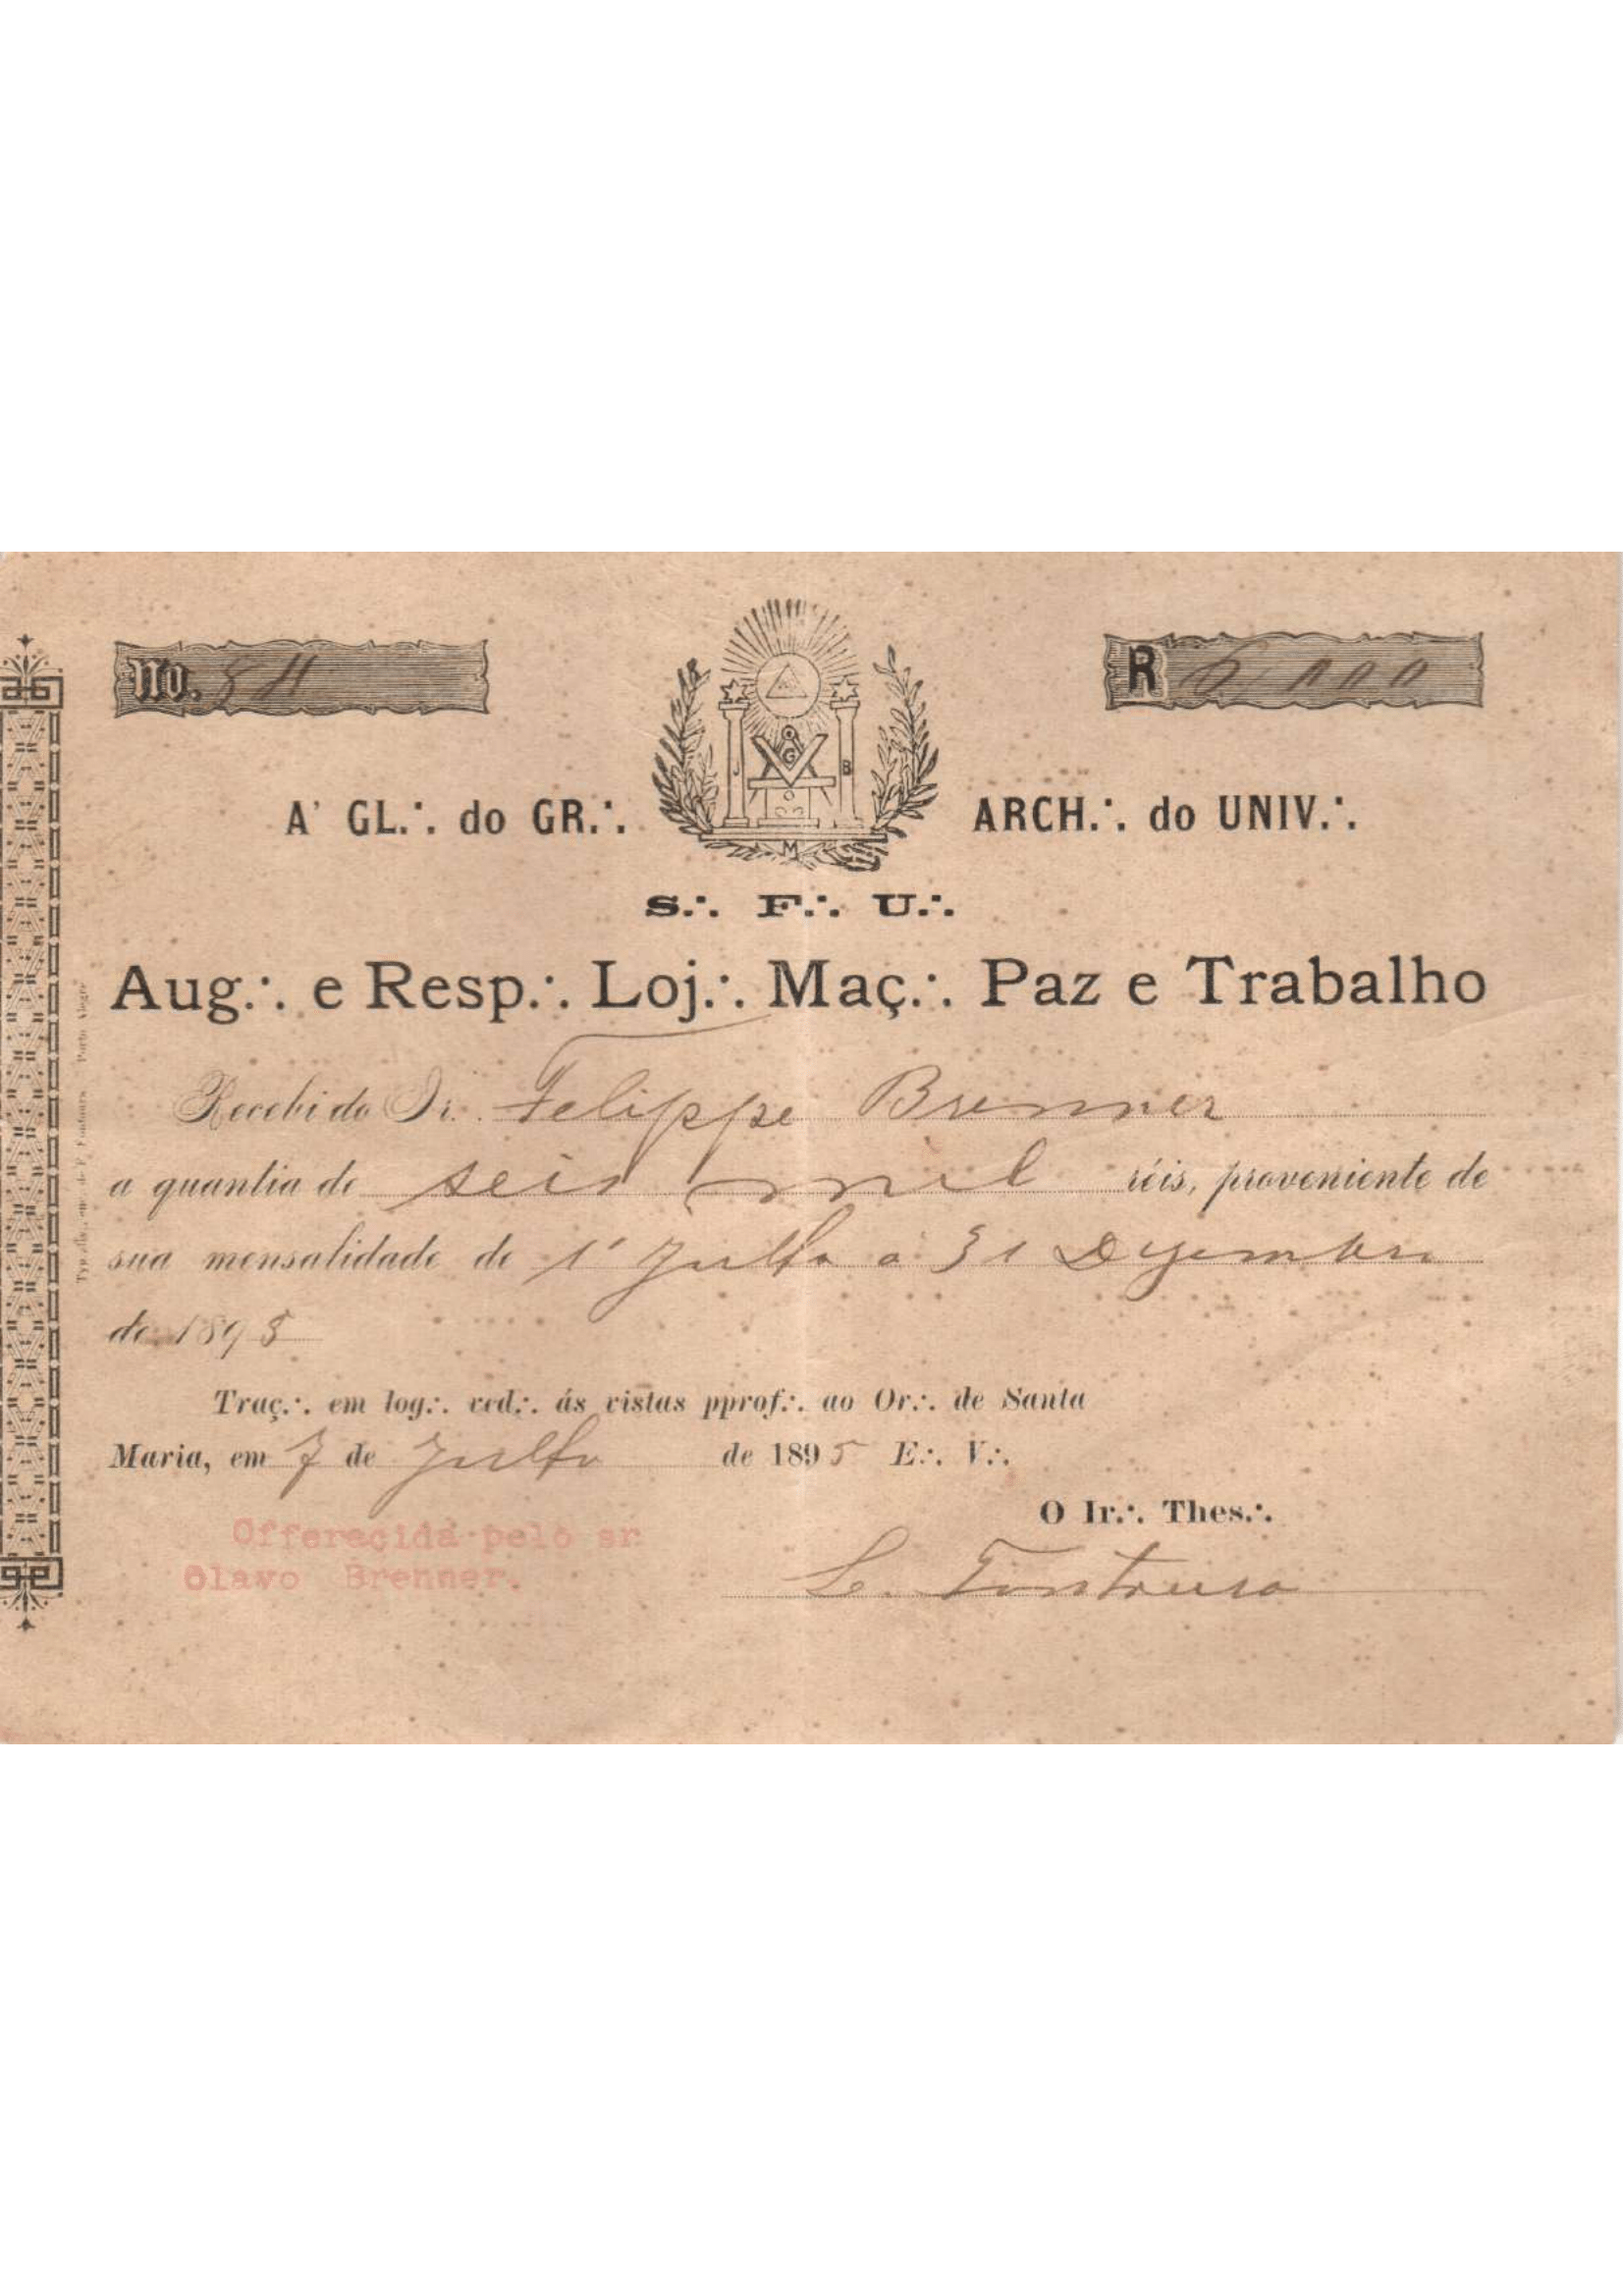 No. 54
R 6.000
A' GL.·. do GR.·. ARCH.·. do UNIV.·.
J B
G
M
S.·. F.·. U.·.
Aug.·. e Resp.·. Loj.·. Maç.·. Paz e Trabalho
Recebi do Ir.·. Felippe Brenner
a quantia de seis mil réis, proveniente de
sua mensalidade de 1º Julho a 31 Dezembro
de 1895
Traç.·. em log.·. ved.·. ás vistas pprof.·. ao Or.·. de Santa
Maria, em 7 de Julho de 1895 E.·. V.·.
O Ir.·. Thes.·.
Offerecida pelo sr
Olavo Brenner.
Fontoura
Porto Alegre